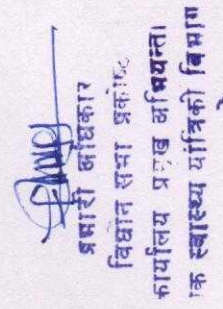 प्रभारी अधिकारी
विधान सभा प्रकोष्ठ
कार्यालय प्रमुख अभियन्ता
क स्वास्थ्य यांत्रिकी विभाग